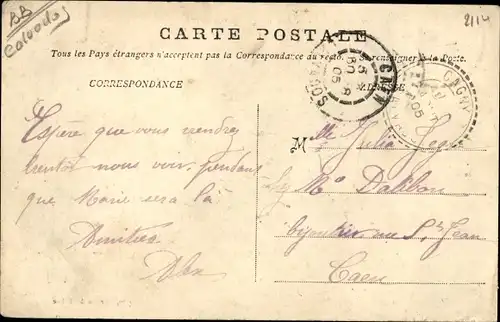 BB
Calvados
2110
CARTE POSTALE
Tous les Pays étrangers n'acceptent pas la Correspondance au recto. renseigner à la Poste.
CORRESPONDANCE
CAEN
CALVADOS
05
CAGNY
05
Espère que vous viendrez
bientôt nous voir, pendant
que Marie sera là
Amitiés
M
elle Julia
Dakbon
bijoutier rue St Jean
Caen